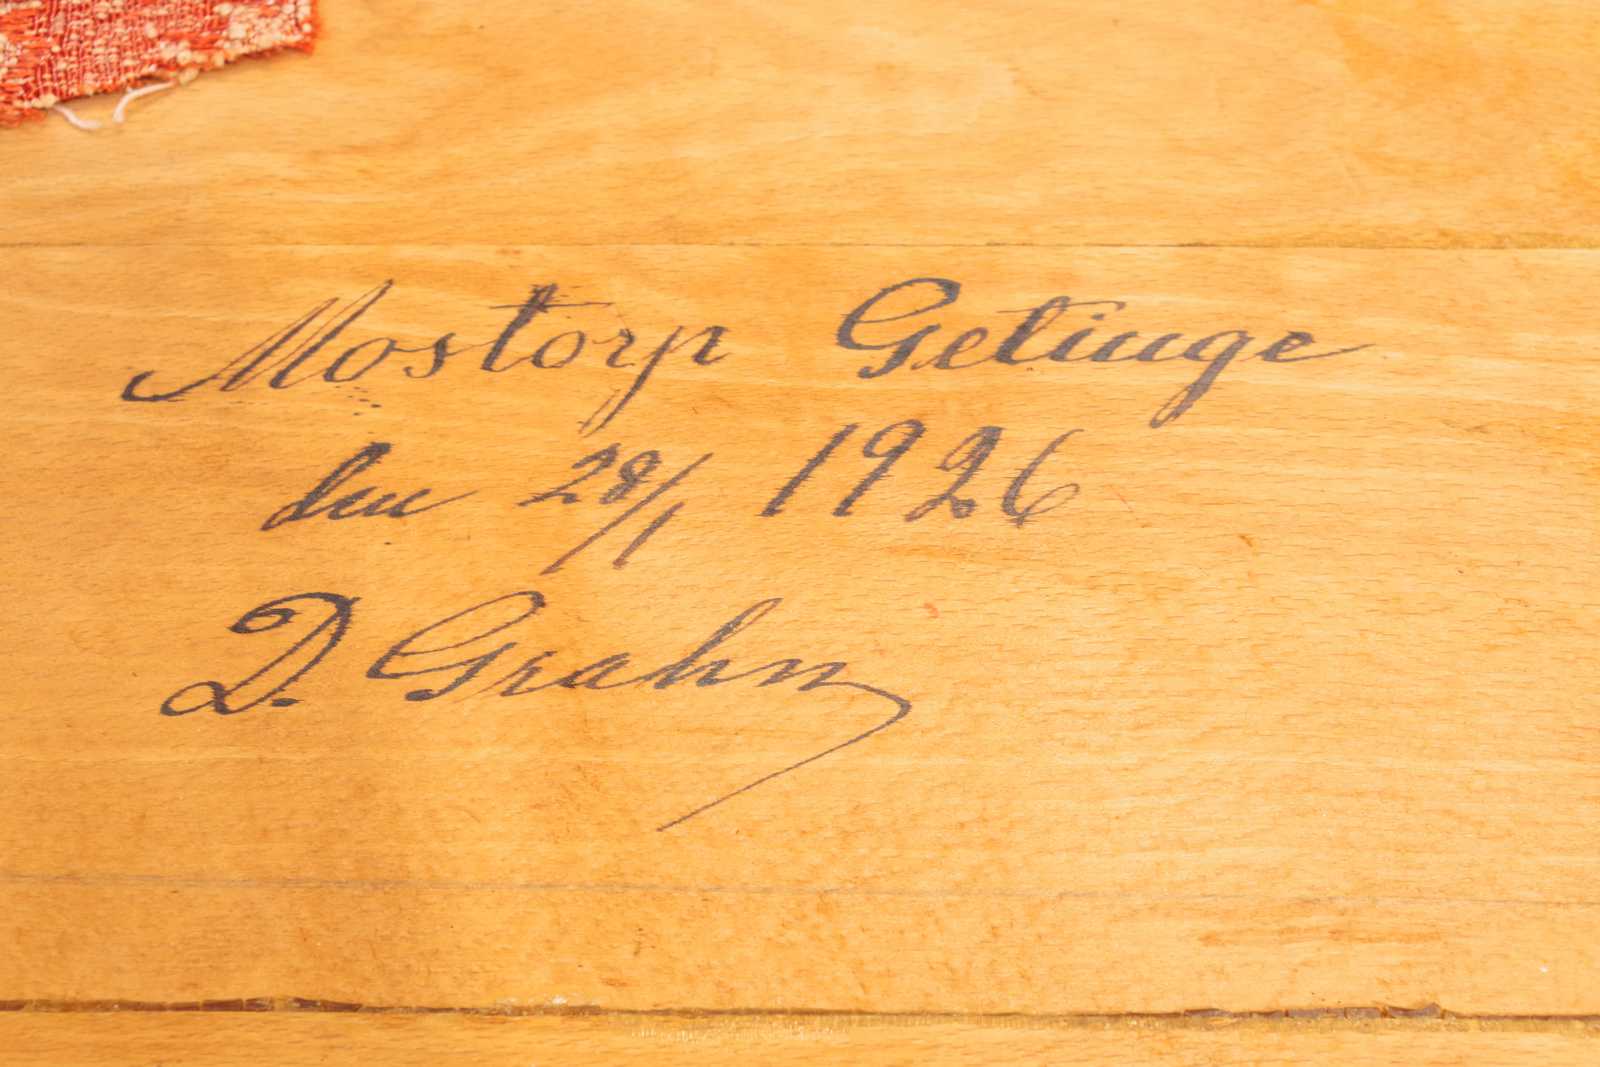 Mostorp Getinge
den 28/1 1926
D. Grahn